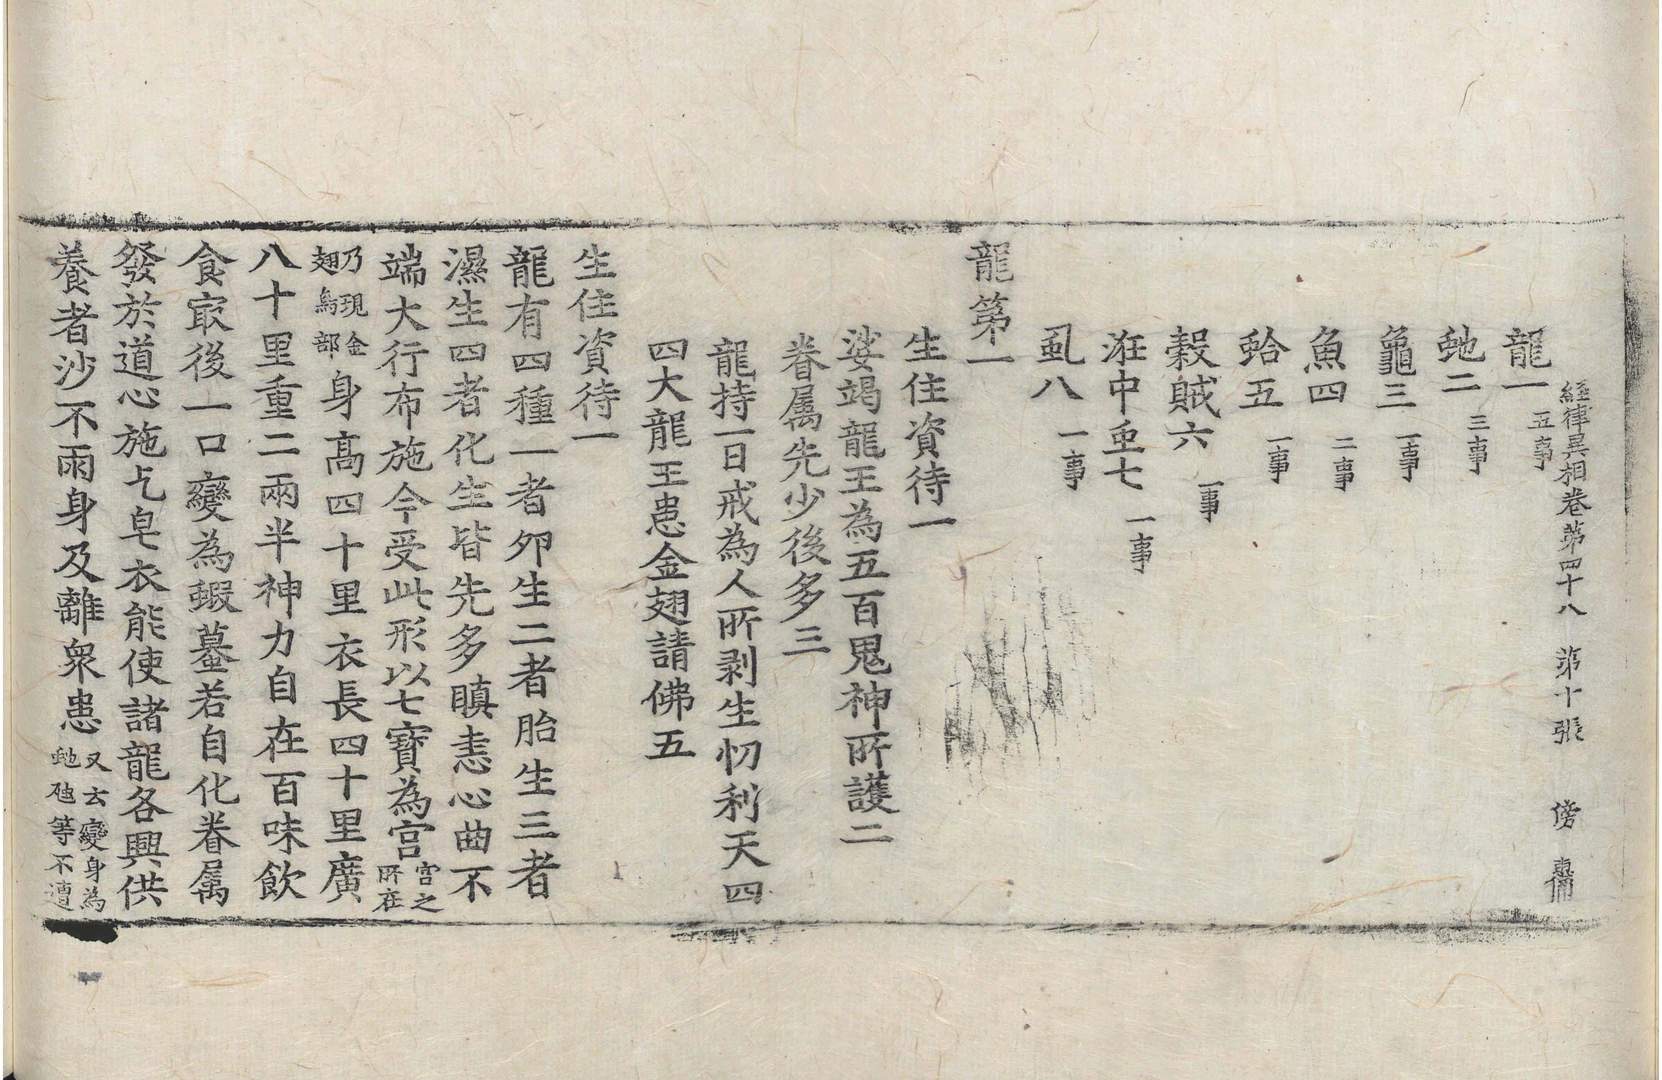 經律異相卷第四十八 第十張 傍
龍一 五事
虵二 三事
龜三 一事
魚四 二事
蛤五 一事
穀賊六 一事
汪中虫七 一事
虱八 一事
龍第一
生住資待一
娑竭龍王為五百鬼神所護二
眷属先少後多三
龍持一日戒為人所剥生忉利天四
四大龍王患金翅請佛五
生住資待一
龍有四種一者卵生二者胎生三者
濕生四者化生皆先多瞋恚心曲不
端大行布施今受此形以七寶為宫 宫之所在
乃現金翅鳥部 身高四十里衣長四十里廣
八十里重二兩半神力自在百味飲
食㝡後一口變為蝦蟇若自化眷属
發於道心施乞皂衣能使諸龍各興供
養者沙不雨身及離衆患 又云變身為虵虺等不遭